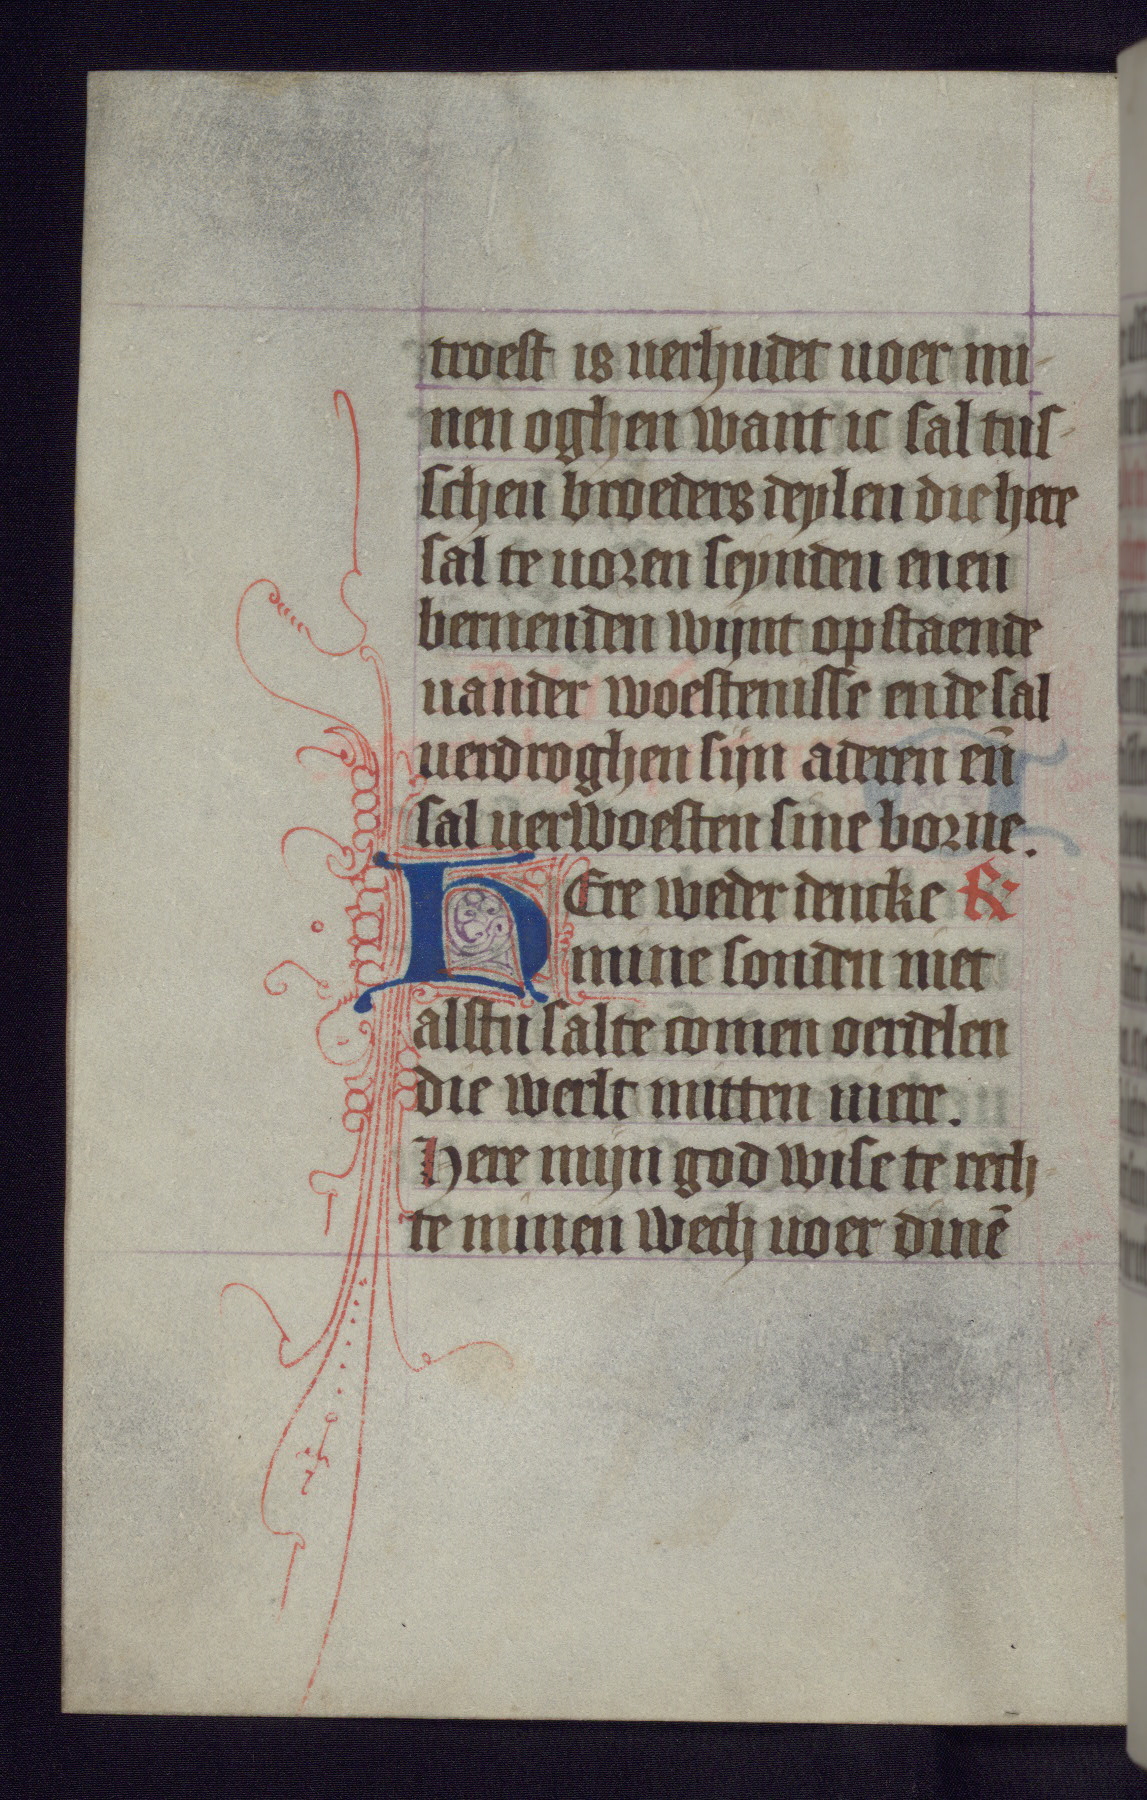 troest is uerhudet uoer mi-
nen oghen want ic sal tus-
schen broeders deylen die here
sal te uoren seynden enen
bernenden wijnt opstaende
uander woestenisse ende sal
uerdroghen sijn aderen en̄
sal uerwoesten sine borne.
HEre weder dencke R:
mine sonden niet
alstu salte comen oerdelen
die werlt mitten uiere.
Here mijn god wise te rech-
te minen wech uoer dinē